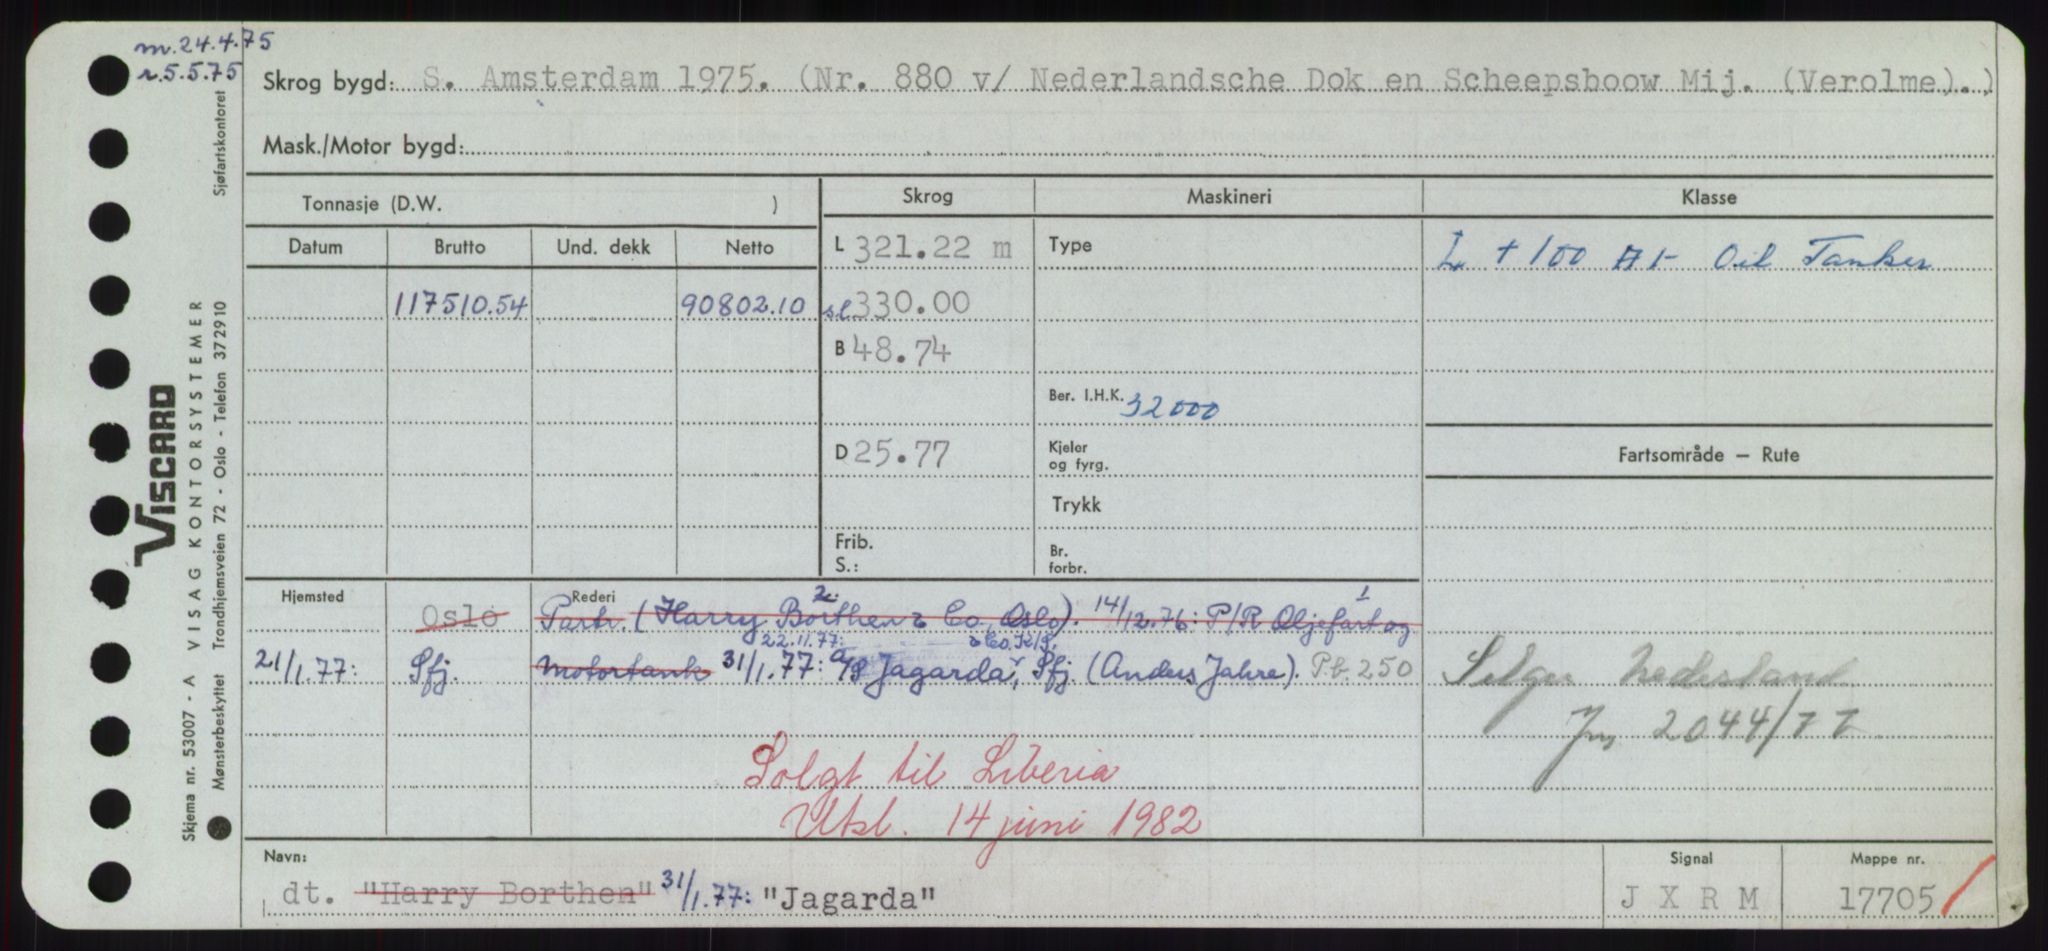 m.24.4.75
r.5.5.75
Skrog bygd: S. Amsterdam 1975. (Nr. 880 v/ Nederlandsche Dok en Scheepsboow Mij. (Verolme).)
Mask./Motor bygd:
Tonnasje (D.W. )
Skrog
Maskineri
Klasse
Datum Brutto Und. dekk Netto
L 321.22 m
Type
L + 100 A1- Oil Tanker
117510.54 90802.10
sl 330.00
B 48.74
Ber. I.H.K. 32000
D 25.77
Kjeler og fyrg.
Fartsområde – Rute
Trykk
Frib.
S.:
Br. forbr.
Hjemsted Rederi
Oslo Partr. (Harry Borthen & Co, Oslo). 14/12.76: P/R Oljefart og
22.11.77: & Co. K/S,
21/1.77: Sfj. Motortank 31/1.77: A/S Jagarda, Sfj. (Anders Jahre). Pb. 250
Selger Nederland
Jn 2044/77
Solgt til Liberia
Utsl. 14 juni 1982
Navn: Signal Mappe nr.
dt. "Harry Borthen" 31/1.77: "Jagarda" J X R M 17705
Skjema nr. 53007 - A VISAG KONTORSYSTEMER
VISCARD
Mønsterbeskyttet Trondhjemsveien 72 - Oslo - Telefon 372910 Sjøfartskontoret